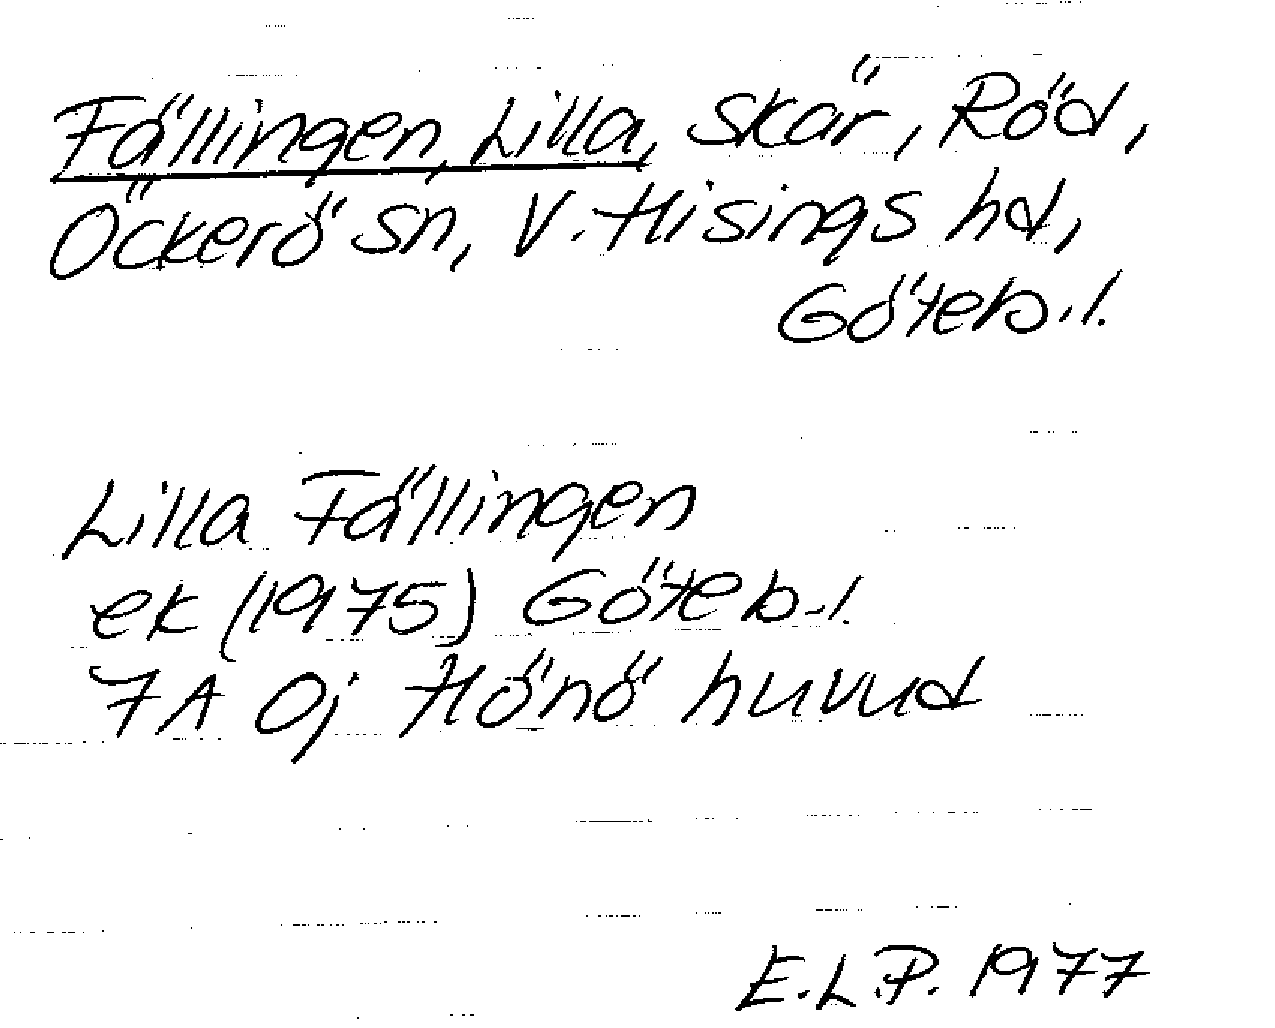 Fällingen, Lilla, skär, Röd,
Öckerö sn, V. Hisings hd,
Göteb.l.
Lilla Fällingen
ek (1975) Göteb.l.
7A 0j Hönö huvud
E.L.P. 1977